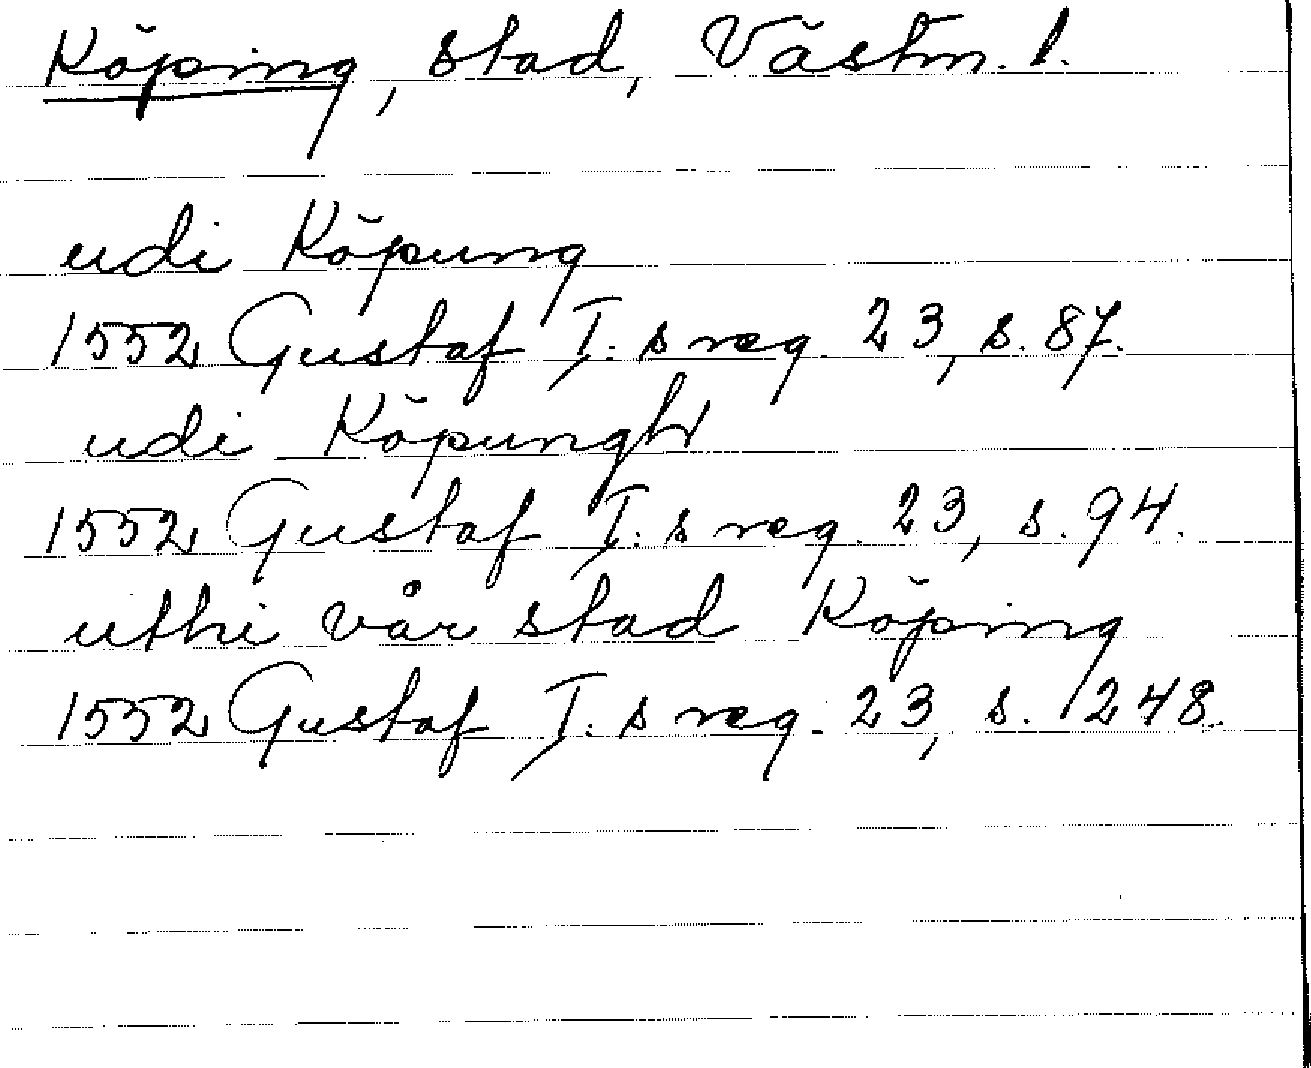 Köping, stad, Västm. l.
udi Köpung
1552 Gustaf I:s reg. 23, s. 87.
udi Köpungh
1552 Gustaf I:s reg. 23, s. 94.
uthi vår stad Köping
1552 Gustaf I:s reg. 23, s. 248.